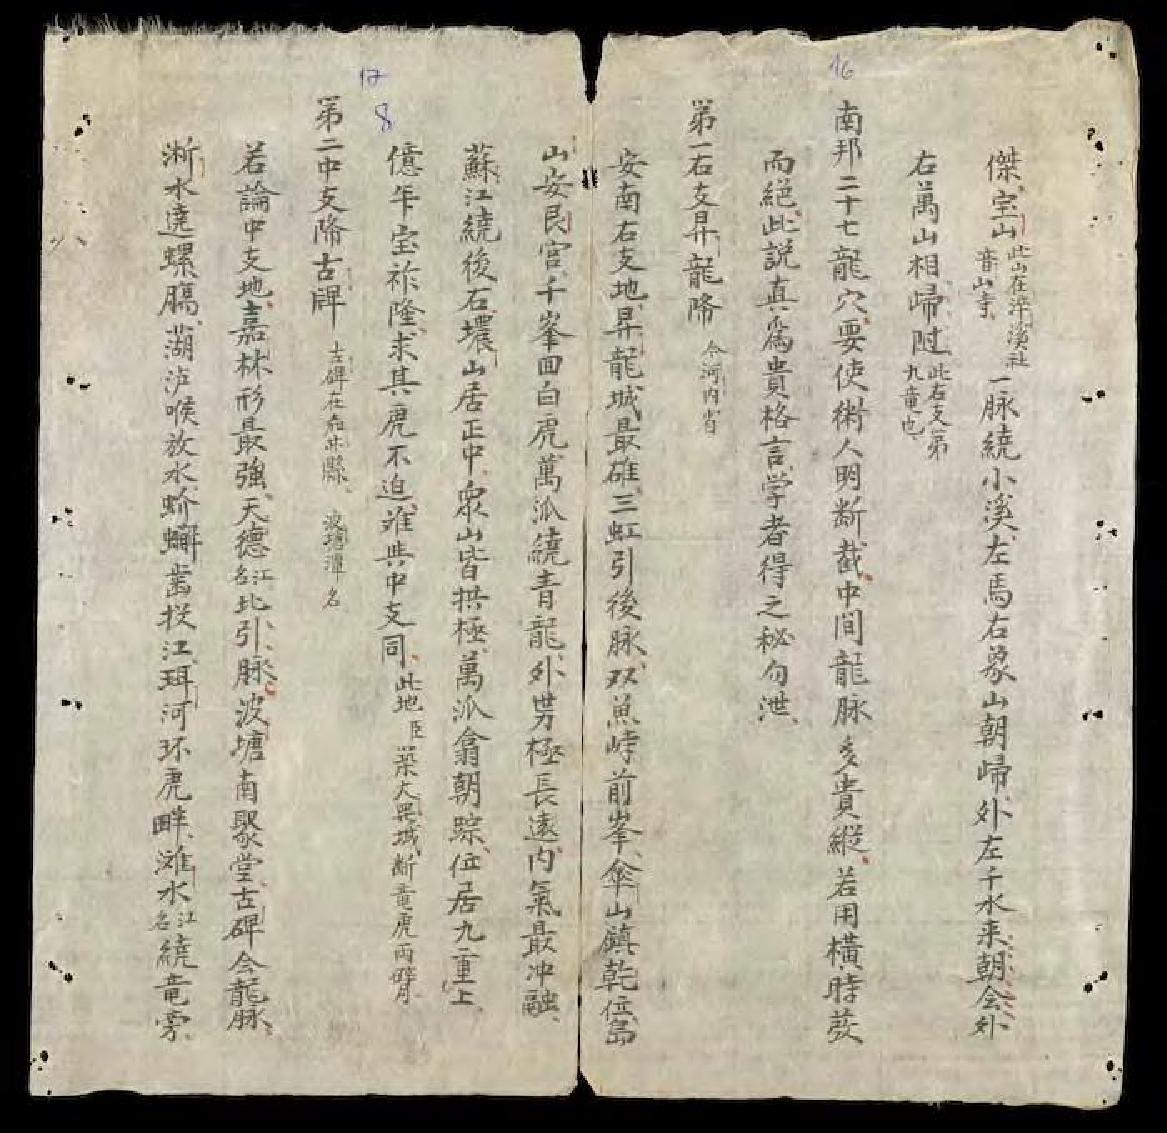 16
傑宝山此山在淬溪社音山寺一脉繞小溪左馬右象山朝歸外左千水来朝会外
右萬山相歸附此右支第九竜也
南邦二十七龍穴要使術人明断截中间龍脉多貴縱若用橫時茭
而絕此説真爲貴格言学者得之秘勿泄
第一右支昇龍降今河内省
安南右支地昇龍城最雄三虹引後脉双魚峙前峯傘山鎮乾位島
山安艮宮千峯回白虎萬派繞青龍外势極長遠内氣最冲融
蘇江繞後石壞山居正中衆山皆拱極萬派翕朝踪位居九重上
17
8
億年宝祚隆求其虎不迫誰與中支同此地臣築大羅城断竜虎兩臂
第二中支降古碑古碑在嘉林縣 波塘潭名
若論中支地嘉林形最強天德江名北引脉波塘南聚堂古碑会龍脉
淅水遶螺膓湖泸喉放水蚧蠏齒投江珥河环虎畔滩水江名繞竜旁